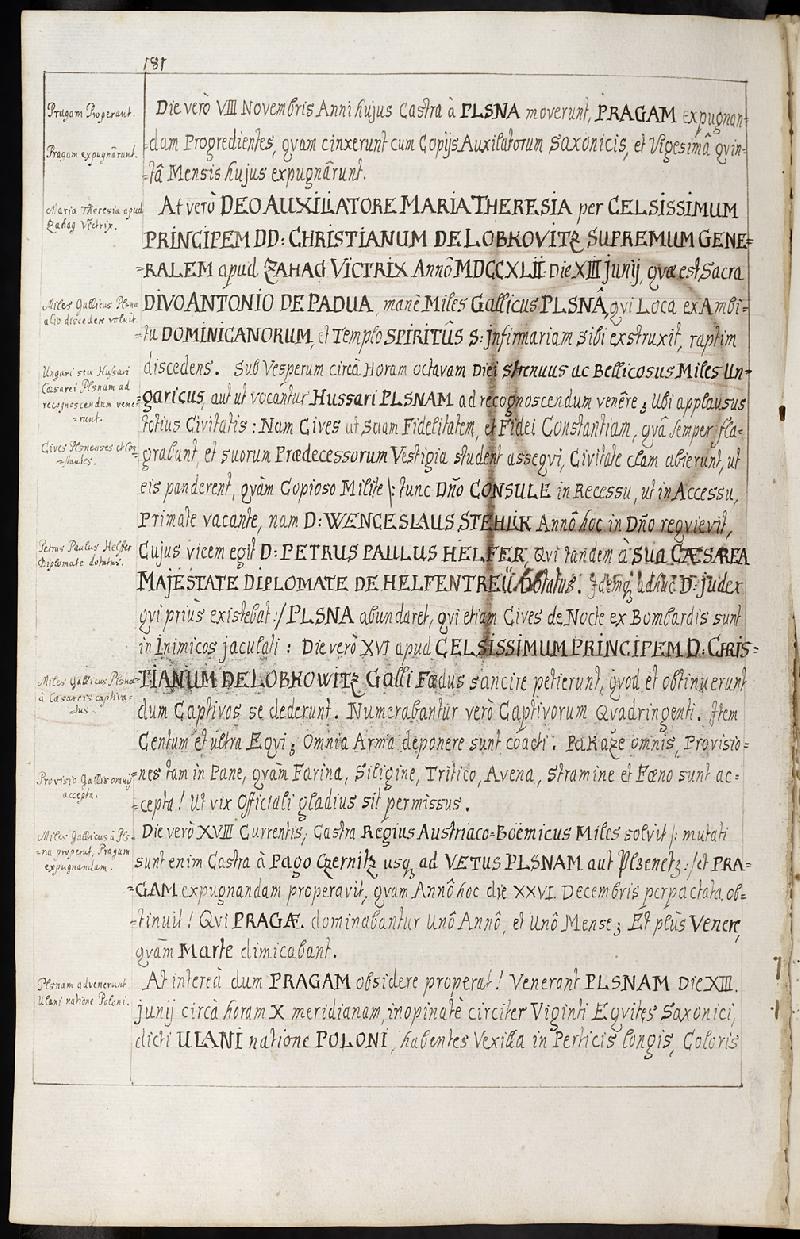 181
Pragam Properant.
Pragam expugnârunt.
Maria Theresia apud
Zahag Victrix.
Miles Gallicus Plsna
alio discedere voluit.
Ungari seu Hussari
Cæsarei Plsnam ad
recognoscendum vene=
=runt.
Cives Plsnenses
Petrus Paulus Helfer
Diplomate dotatus.
Miles Gallicus Plsna
à Cæsareis captiva=
=tus.
Provisio Gallis omnis
accepta.
Miles Gallicus à Pls=
=na properat, Pragam
expugnandam.
Plsnam advenerunt
Ulani natione Poloni.
Die verò VIII Novembris Anni hujus Castra à PLSNA moverunt, PRAGAM expugnan=
=dam Progredientes, qvam cinxerunt cum Copijs Auxiliatorum Saxonicis, et Vigesimâ qvin=
=tâ Mensis hujus expugnârunt.
At verò DEO AUXILIATORE MARIA THERESIA per CELSISSIMUM
PRINCIPEM DD: CHRISTIANUM DE LOBKOVITZ SUPREMUM GENE=
=RALEM apud ZAHAG VICTRIX Annô MDCCXLII Die XIII Junij, qvæ est Sacra
DIVO ANTONIO DE PADUA, manè Miles Gallicus PLSNÂ, qvi Loca ex Ambi=
=tu DOMINICANORUM, et Templo SPIRITÛS S: Infirmariam sibi exstruxit, raptim
discedens. Sub Vesperum circà Horam octavam Diei strenuus ac Bellicosus Miles Un=
garicus, aut ut vocantur Hussari PLSNAM ad recognoscendum venêre; Ubi applausus
totius Civitatis: Nam Cives ut suam Fidelitatem, et Fidei Constantiam, qvâ semper fla=
grabant, et suorum Prædecessorum Vestigia student asseqvi, Civitate clam abierunt, ut
eis panderent, qvàm Copioso Milite /: tunc Dño CONSULE in Recessu, ut in Accessu,
Primate vacante, nam D: WENCESLAUS STEHLIK Annô hoc in Dño reqvievit,
Cujus vicem egit D: PETRUS PAULUS HELFER, Qvi tandem à SUA CÆSAREA
MAJESTATE DIPLOMATE DE HELFENTREU Dotatus. Idemq adhuc D: Judex
qvi priùs existebat :/ PLSNA abundaret, qvi etiam Cives de Nocte ex Bombardis sunt
in Inimicos jaculati: Die verò XVI apud CELSISSIMUM PRINCIPEM D: CHRIS=
TIANUM DE LOBKOWITZ Galli Fœdus sancire petierunt, Qvod et obtinuerunt
dum Captivos se dederunt. Numerabantur verò Captivorum Qvadringenti. Item
Centum et ultra Eqvi; Omnia Arma deponere sunt coacti. PaKaže omnis, Provisio=
=nes tam in Pane, qvam Farina, Siligine, Tritico, Avena, Stramine et Fœno sunt ac=
=cepta! Ut vix Officiali gladius sit permissus.
Die verò XVIII Currentis, Castra Regius Austriaco=Boëmicus Miles solvit /: mutati
sunt enim Castra à Pago Czernitz usq ad VETUS PLSNAM aut Plsenetz :/ et PRA=
=GAM expugnandam properavit, qvam Annô hoc die XXVI. Decembris per pactata ob=
=tinuit! Qvi PRAGÆ. dominabantur Unô Annô, et Unô Mense; Et plùs Venere,
qvàm Marte dimicabant.
At intereà dum PRAGAM obsidere properat! Venerant PLSNAM Die XIII.
Junij circà horam X meridianam, inopinatè circiter Viginti Eqvites Saxonici,
dicti ULANI natione POLONI, habentes Vexilla in Perticis longis, Coloris